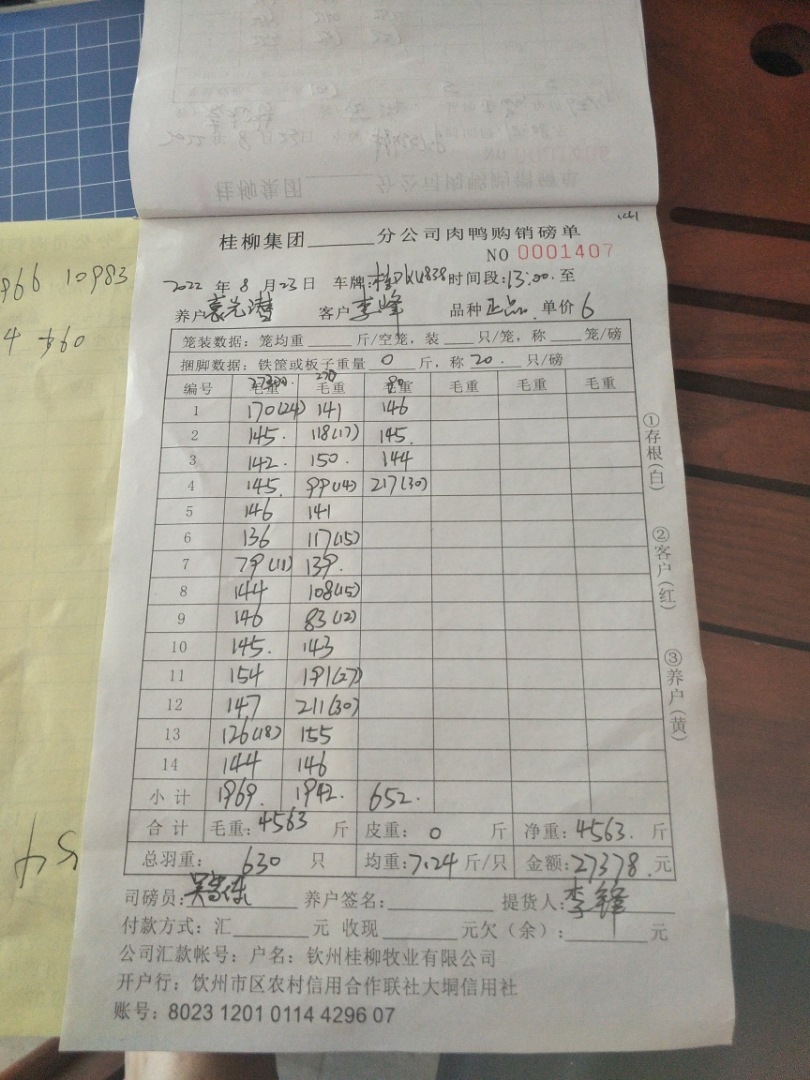 966 10983
4
桂柳集团______分公司肉鸭购销磅单
NO 0001407
2022 年 8 月 23 日 车牌: 838 时间段: 13:00. 至
养户 袁光潜 客户 李峰 品种 正品. 单价 6
笼装数据: 笼均重 ______ 斤/空笼, 装 ____ 只/笼, 称 ____ 笼/磅
捆脚数据: 铁筐或板子重量 0 斤, 称 20. 只/磅
270 80
编号 毛重 毛重 毛重 毛重 毛重 毛重
1 170(24) 141 146
2 145. 118(17) 145.
3 142. 150. 144
4 145. 99(14) 217(30)
5 146 141
6 136 117(15)
7 79(11) 139.
8 144 108(15)
9 146 83(12)
10 145. 143
11 154 191(27)
12 147 211(30)
13 126(18) 155
14 144 146
小计 1969. 1942. 652.
合计 毛重: 4563 斤 皮重: 0 斤 净重: 4563. 斤
总羽重: 630 只 均重: 7.24 斤/只 金额: 27378. 元
司磅员: 养户签名:________ 提货人: 李锋
付款方式: 汇______元 收现______元欠(余):______元
公司汇款帐号: 户名: 钦州桂柳牧业有限公司
开户行: 钦州市区农村信用合作联社大垌信用社
账号: 8023 1201 0114 4296 07
①存根(白)
②客户(红)
③养户(黄)